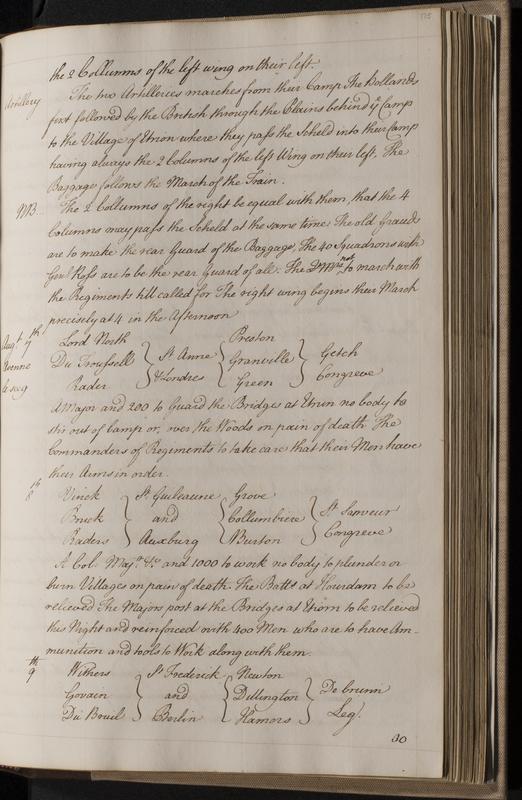 the 2 Collumns of the left wing on their left.
Artillery
The two Artilleries marches from their Camp The Hollands
first followed by the British through the Plains behind yᵉ Camp
to the Village of Etrion where they pass the Scheld into their Camp
having always the 2 Columns of the left Wing on their left. The
Baggage follows the March of the Train.
NB.
The 2 Collumns of the right be equal with them, that the 4
Columns may pass the Scheld at the same time The old Grands
are to make the rear Guard of the Baggage, The 40 Squadrons with
Genˡ Ross are to be the rear Guard of all. The not to march with
the Regiments till called for The right wing begins their March
precisely at 4 in the Afternoon
Augᵗ 7ᵗʰ
Avenne
le secq
Lord North } Sᵗ Anne { Preston } Getch
Du Troussell } & Londres { Granville } Congreve
Rader } { Green }
A Major and 200 to Guard the Bridges at Etrun no body to
stir out of Camp or, over the Woods on pain of death The
Commanders of Regiments to take care that their Men have
their Arms in order.
8ᵗʰ
Vinck } Sᵗ Guileaune { Grove } Sᵗ Sanveur
Bruck } and { Collumbiere } Congreve
Raders } Auxburg { Burton }
A Colˡ Majʳ &c and 1000 to work no body to plunder or
burn Villages on pain of death. The Battˢ at Hourdam to be
relieved The Majors post at the Bridges at Etrorn to be relieved
this Night and reinforced with 400 Men who are to have Am-
munition and tools to Work along with them.
9ᵗʰ
Withers } Sᵗ Frederick { Newton } De brunn
Govain } and { Dillington } Legˡ
Du Breuil } Berlin { Hamors }
30